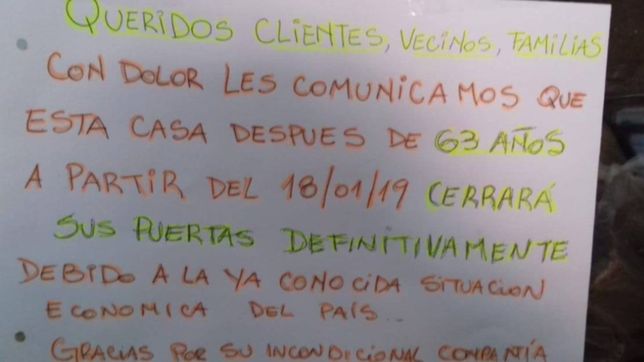 QUERIDOS CLIENTES, VECINOS, FAMILIAS
CON DOLOR LES COMUNICAMOS QUE
ESTA CASA DESPUES DE 63 AÑOS
A PARTIR DEL 18/01/19 CERRARÁ
SUS PUERTAS DEFINITIVAMENTE
DEBIDO A LA YA CONOCIDA SITUACION
ECONOMICA DEL PAÍS...
GRACIAS POR SU INCONDICIONAL COMPAÑÍA